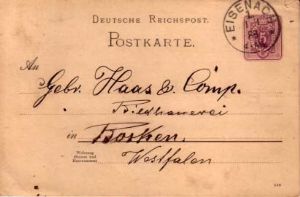 DEUTSCHE REICHSPOST.
EISENACH
POSTKARTE.
An
Gebr. Haas & Comp.
in Borken.
Wohnung
(Strasse und
Hausnummer)
Westfalen